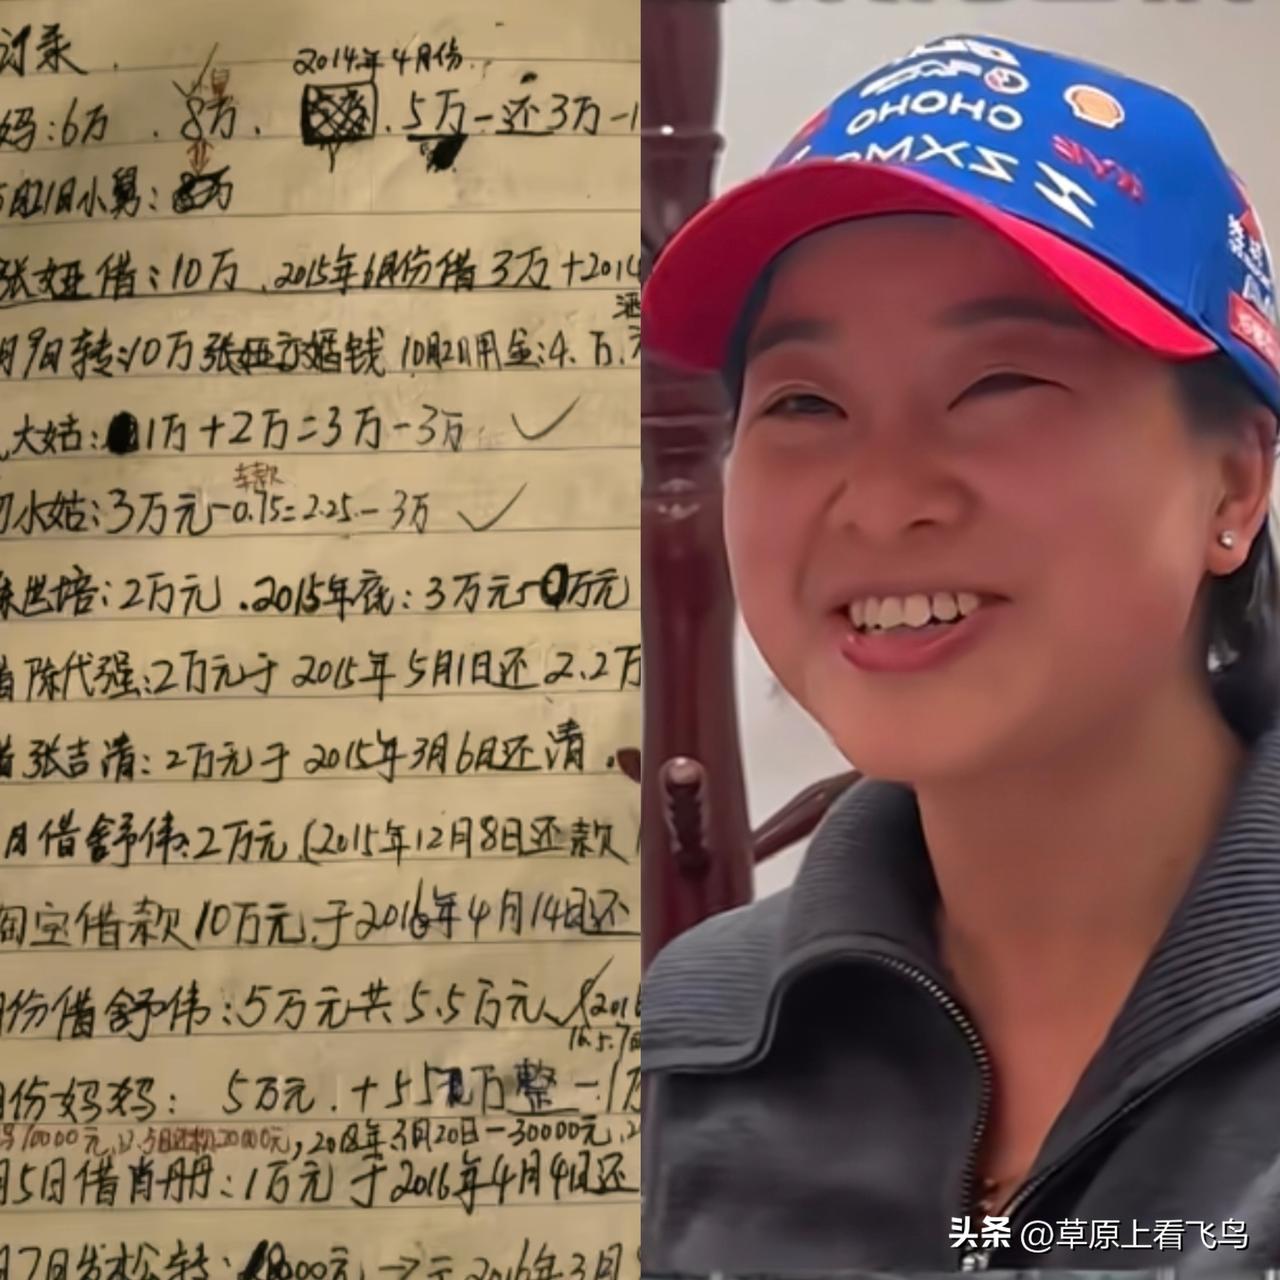 讨录.
2014年4月份
妈:6万.8万.5万-还3万-1
5月21日小舅:
张娅借:10万.2015年6月份借3万+2014
月9日转:10万张娅 婚钱 10月2日用 :4.万.
大姑: 1万+2万=3万-3万 ✓
车款
小姑:3万元-0.75=2.25-3万 ✓
世培:2万元.2015年底:3万元-0万元
陈代强:2万元于2015年5月1日还2.2万
张吉清:2万元于2015年3月6日还清.
月借舒伟:2万元.(2015年12月8日还款
淘宝借款10万元.于2016年4月14日还
份借舒伟:5万元共5.5万元✓(2016
16.5.7
份妈妈:5万元.+5.5万整-1万
10000元, 20000元,2018年3月20日-30000元,2
月5日借肖丹:1万元于2016年4月4日还
月7日 松转: 000元→于2016年3月
OHOHO
头条 @草原上看飞鸟